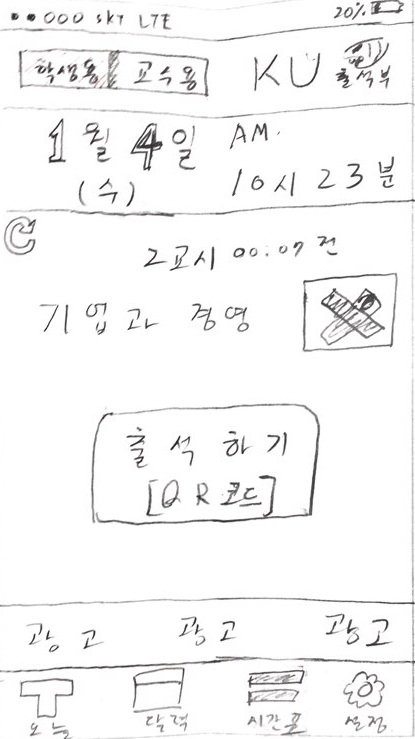 ●●○○○ SKY LTE 20%
학생용 교수용 KU 출석부
1월 4일 AM.
(수) 10시 23분
2교시 00:07 전
기업과 경영
출석하기
[QR코드]
광고 광고 광고
오늘 달력 시간표 설정